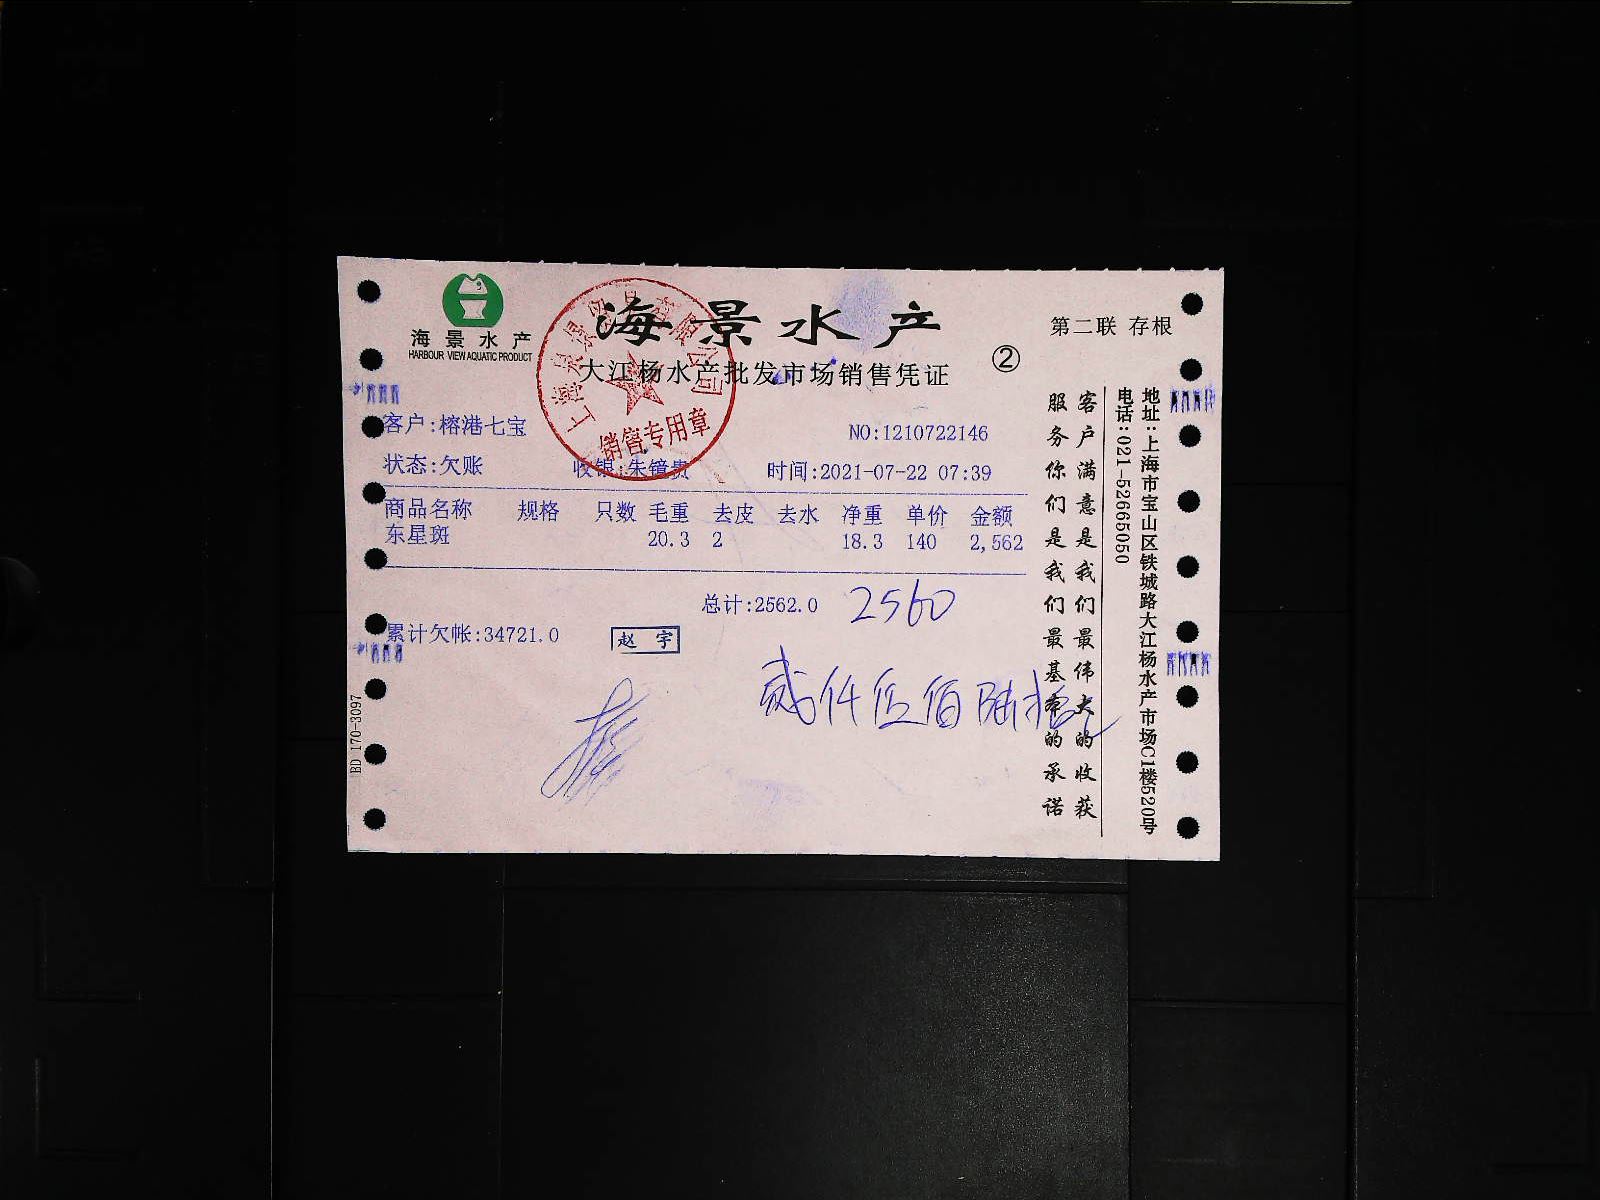 海景水产
HARBOUR VIEW AQUATIC PRODUCT
海景水产
大江杨水产批发市场销售凭证
②
第二联 存根
销售专用章
客户:榕港七宝
NO:1210722146
状态:欠账 收银:朱镜贵 时间:2021-07-22 07:39
商品名称 规格 只数 毛重 去皮 去水 净重 单价 金额
东星斑 20.3 2 18.3 140 2,562
总计:2562.0 2560
累计欠帐:34721.0 赵宇
贰仟伍佰陆拾
BD 170-3097
客户满意是我们最伟大的收获
服务你们是我们最基本的承诺
地址:上海市宝山区铁城路大江杨水产市场C1楼520号
电话:021-52665050